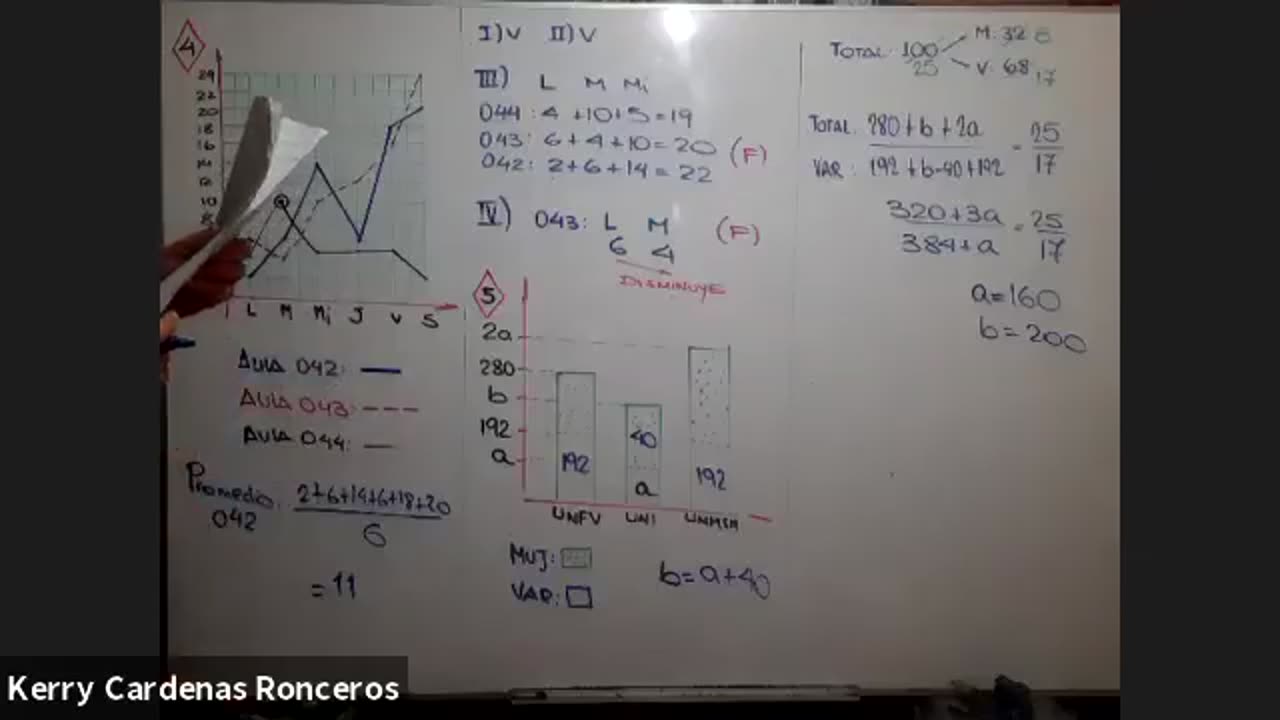 4
24
22
20
18
16
14
12
10
8
L M Mi J V S
AULA 042:
AULA 043:
AULA 044:
Promedio: 2+6+14+6+18+20
042
6
= 11
I) V II) V
III) L M Mi
044: 4 +10+5=19
043: 6+4+10=20 (F)
042: 2+6+14=22
IV) 043: L M (F)
6 4
DISMINUYE
5
2a
280
b
192
a
192
40
a
192
UNFV UNI UNMSM
MUJ:
VAR:
b=a+40
TOTAL: 100 M: 32 8
25 V: 68 17
TOTAL: 280+b+2a = 25
VAR: 192+b-40+192 17
320+3a = 25
384+a 17
a=160
b=200
Kerry Cardenas Ronceros